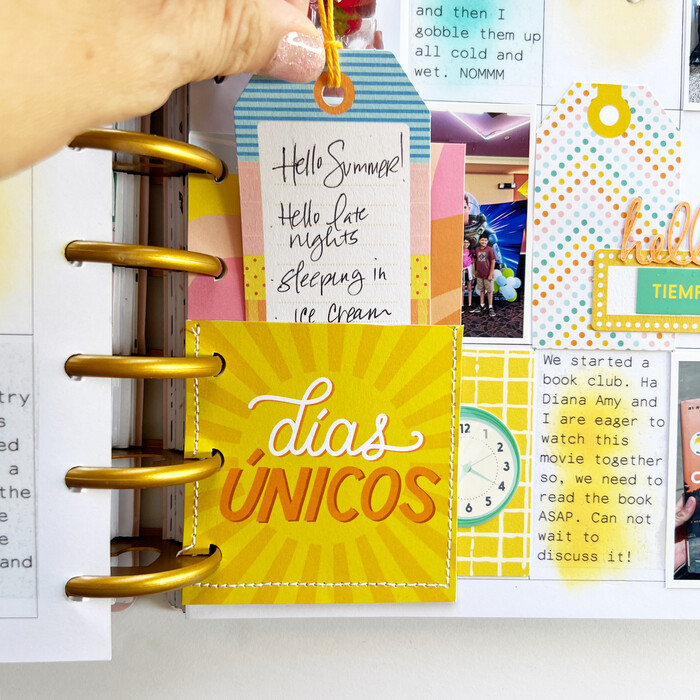 and then I
gobble them up
all cold and
wet. NOMMM
Hello Summer!
Hello late
nights
sleeping in
ice cream
días
ÚNICOS
hell
TIEMP
12
1
2
3
4
5
6
We started a
book club. Ha
Diana Amy and
I are eager to
watch this
movie together
so, we need to
read the book
ASAP. Can not
wait to
discuss it!
try
s
ed
a
the
e
e
and